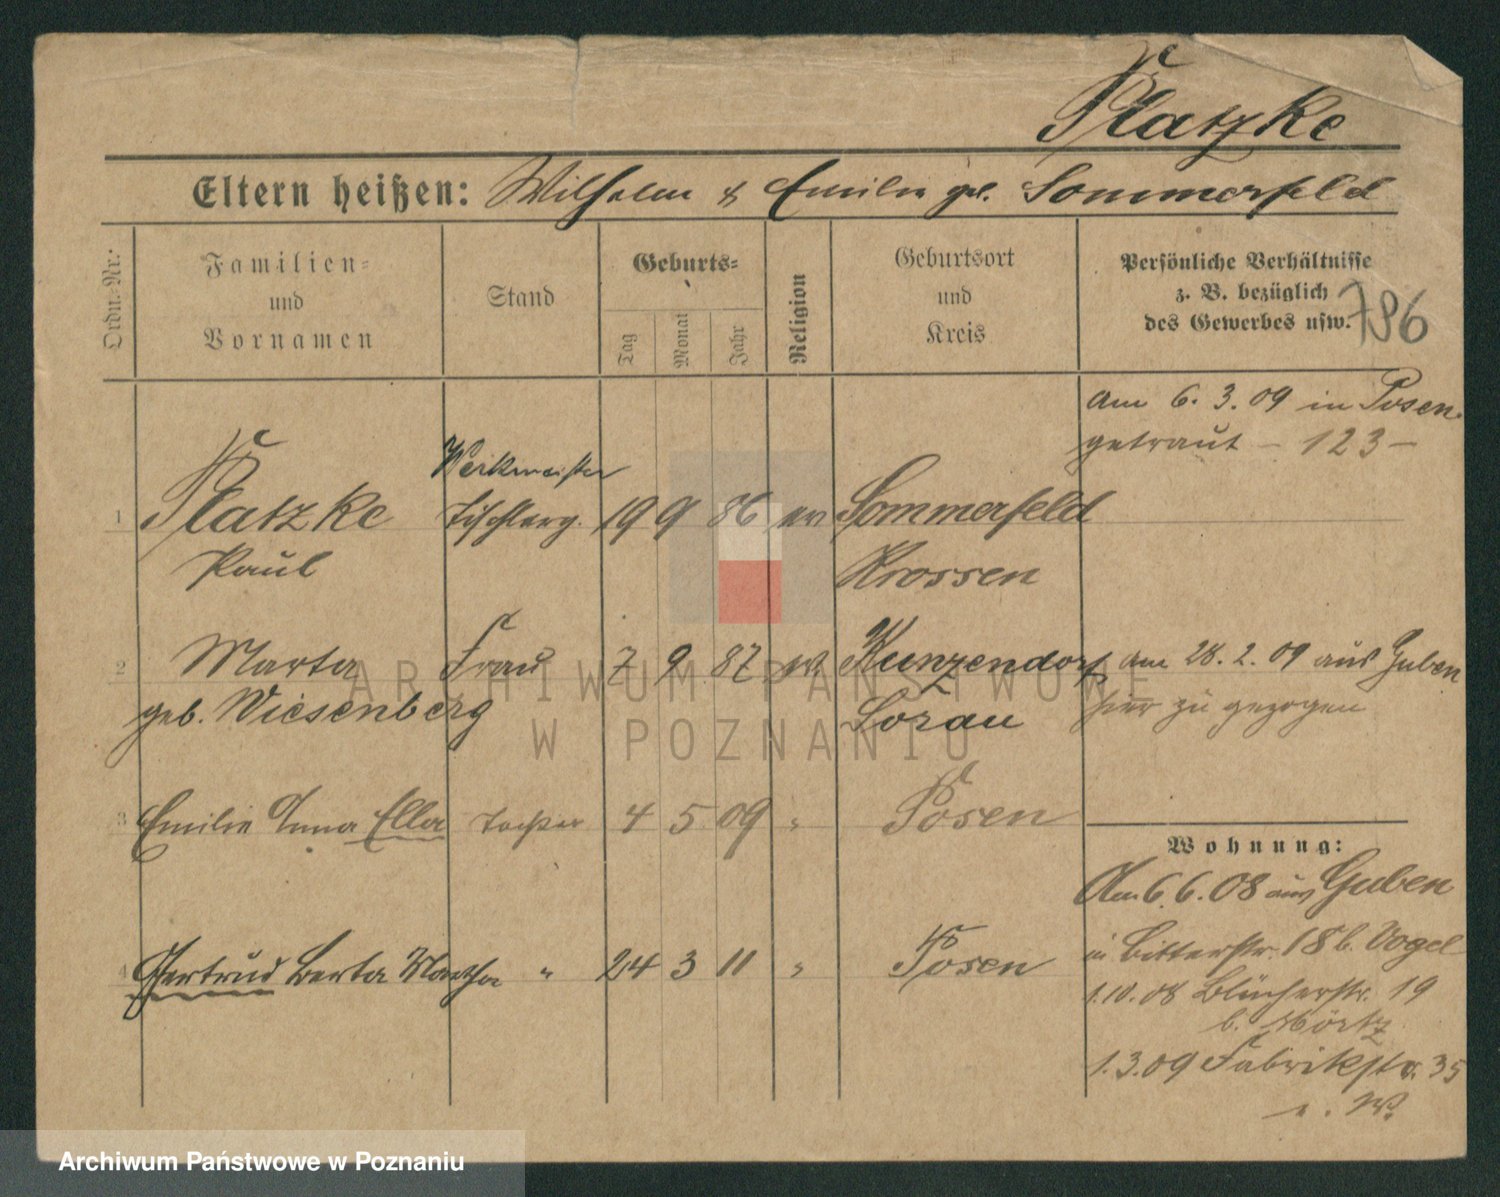 Platzke
Eltern heißen: Wilhelm & Emilie geb. Sommerfeld
Ordn.-Nr.:
Familien-
und
Vornamen
Stand
Geburts-
Tag
Monat
Jahr
Religion
Geburtsort
und
Kreis
Persönliche Verhältnisse
z. B. bezüglich
des Gewerbes usw.
786
am 6. 3. 09 in Posen
getraut - 123 -
Werkmeister
1 Platzke Tischlerg. 19 9 86 ev Sommerfeld
Paul Krossen
2 Marta Frau 7 9 87 ev. Kunzendorf am 28. 2. 09 aus Guben
geb. Wiesenberg Sorau hier zu gezogen
3 Emilie Anna Ella Tochter 4 5 09 " Posen
Wohnung:
Am 6. 6. 08 aus Guben
in Bitterstr. 18 b. Vogel
4 Gertrud Berta Martha " 24 3 11 " Posen
1.10.08 Blücherstr. 19
b.
1.3.09 Fabrikstr. 35
e. W.
ARCHIWUM PAŃSTWOWE
W POZNANIU
Archiwum Państwowe w Poznaniu